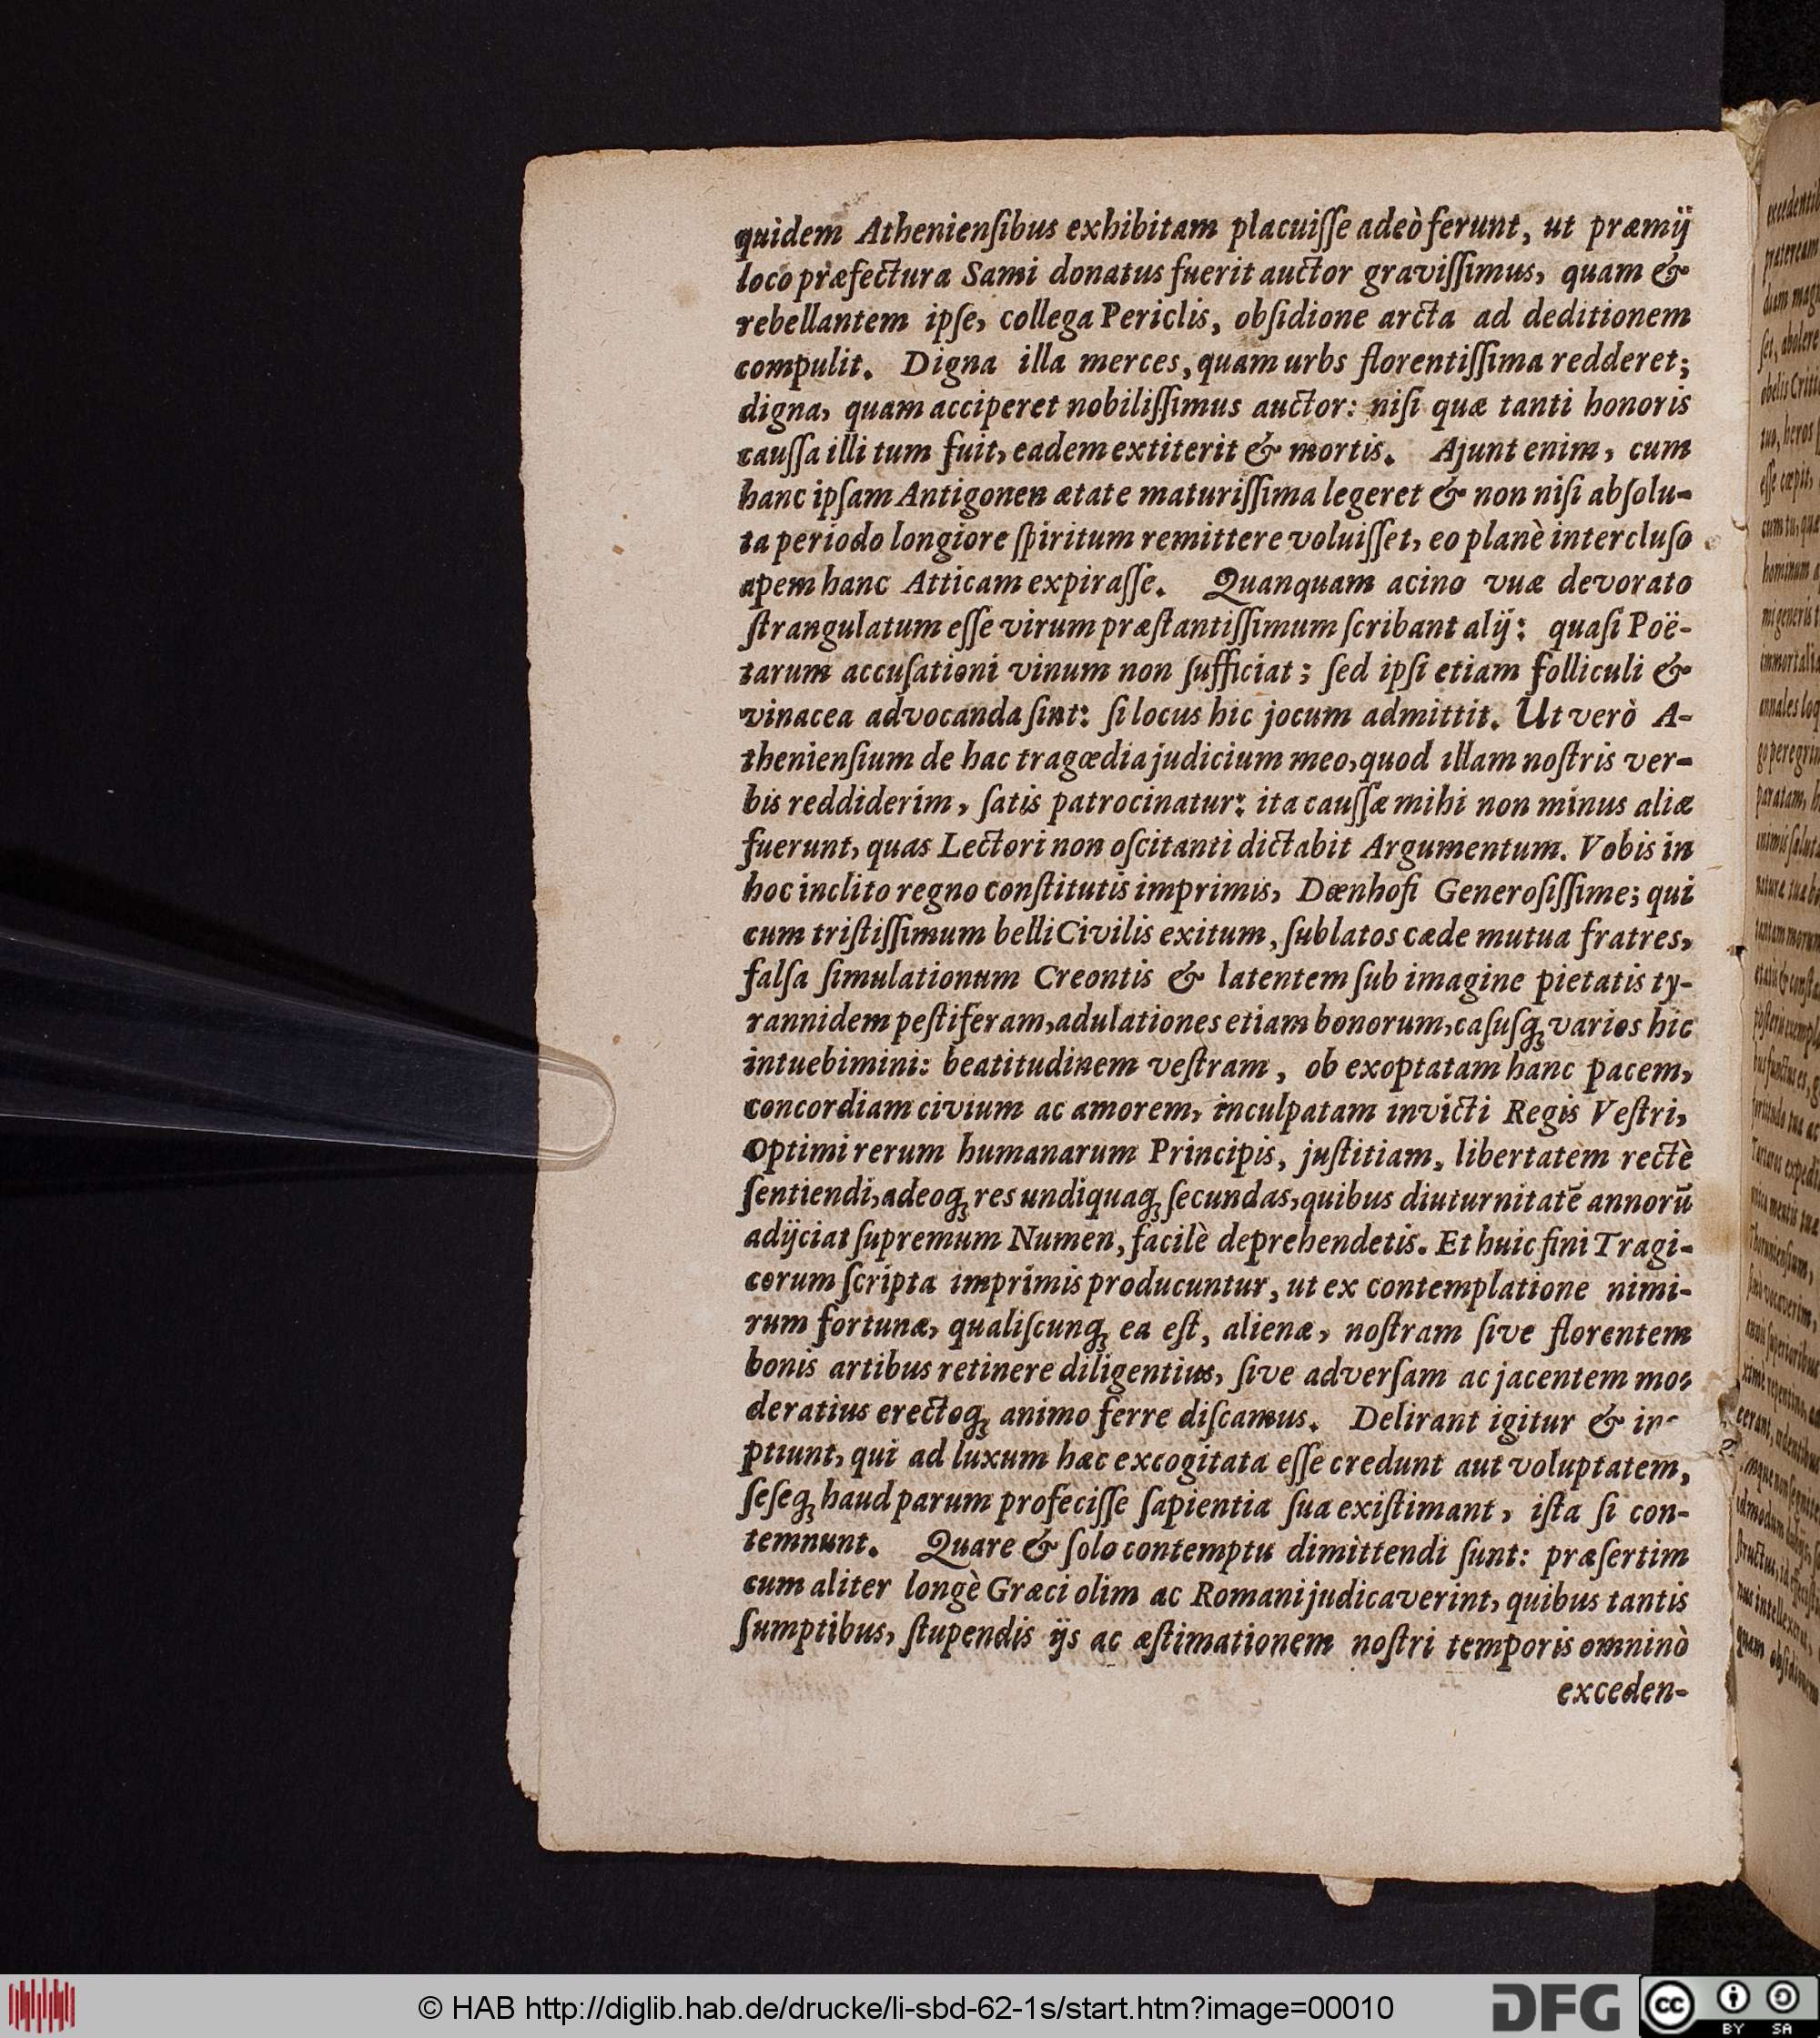 quidem Athenienſibus exhibitam placuiſſe adeò ferunt, ut præmij
loco præfectura Sami donatus fuerit auctor graviſſimus, quam &
rebellantem ipſe, collega Periclis, obſidione arcta ad deditionem
compulit. Digna illa merces, quam urbs florentiſſima redderet;
digna, quam acciperet nobiliſſimus auctor: niſi quæ tanti honoris
cauſſa illi tum fuit, eadem extiterit & mortis. Ajunt enim, cum
hanc ipſam Antigonen ætate maturiſſima legeret & non niſi abſolu-
ta periodo longiore ſpiritum remittere voluiſſet, eo planè intercluſo
apem hanc Atticam expiraſſe. Quanquam acino vuæ devorato
ſtrangulatum eſſe virum præſtantiſſimum ſcribant alij: quaſi Poë-
tarum accuſationi vinum non ſufficiat; ſed ipſi etiam folliculi &
vinacea advocanda ſint: ſi locus hic jocum admittit. Ut verò A-
thenienſium de hac tragœdia judicium meo, quod illam noſtris ver-
bis reddiderim, ſatis patrocinatur: ita cauſſæ mihi non minus aliæ
fuerunt, quas Lectori non oſcitanti dictabit Argumentum. Vobis in
hoc inclito regno conſtitutis imprimis, Dœnhofi Generoſiſſime; qui
cum triſtiſſimum belli Civilis exitum, ſublatos cæde mutua fratres,
falſa ſimulationum Creontis & latentem ſub imagine pietatis ty-
rannidem peſtiferam, adulationes etiam bonorum, caſuſq; varios hic
intuebimini: beatitudinem veſtram, ob exoptatam hanc pacem,
concordiam civium ac amorem, inculpatam invicti Regis Veſtri,
Optimi rerum humanarum Principis, juſtitiam, libertatem rectè
ſentiendi, adeoq; res undiquaq; ſecundas, quibus diuturnitatē annorū
adijciat ſupremum Numen, facilè deprehendetis. Et huic fini Tragi-
corum ſcripta imprimis producuntur, ut ex contemplatione nimi-
rum fortunæ, qualiſcunq; ea eſt, alienæ, noſtram ſive florentem
bonis artibus retinere diligentius, ſive adverſam ac jacentem mo-
deratius erectoq; animo ferre diſcamus. Delirant igitur &
ptiunt, qui ad luxum hæc excogitata eſſe credunt aut voluptatem,
ſeſeq; haud parum profeciſſe ſapientia ſua exiſtimant, iſta ſi con-
temnunt. Quare & ſolo contemptu dimittendi ſunt: præſertim
cum aliter longè Græci olim ac Romani judicaverint, quibus tantis
ſumptibus, ſtupendis ijs ac æſtimationem noſtri temporis omninò
exceden-
© HAB http://diglib.hab.de/drucke/li-sbd-62-1s/start.htm?image=00010
DFG
cc BY SA